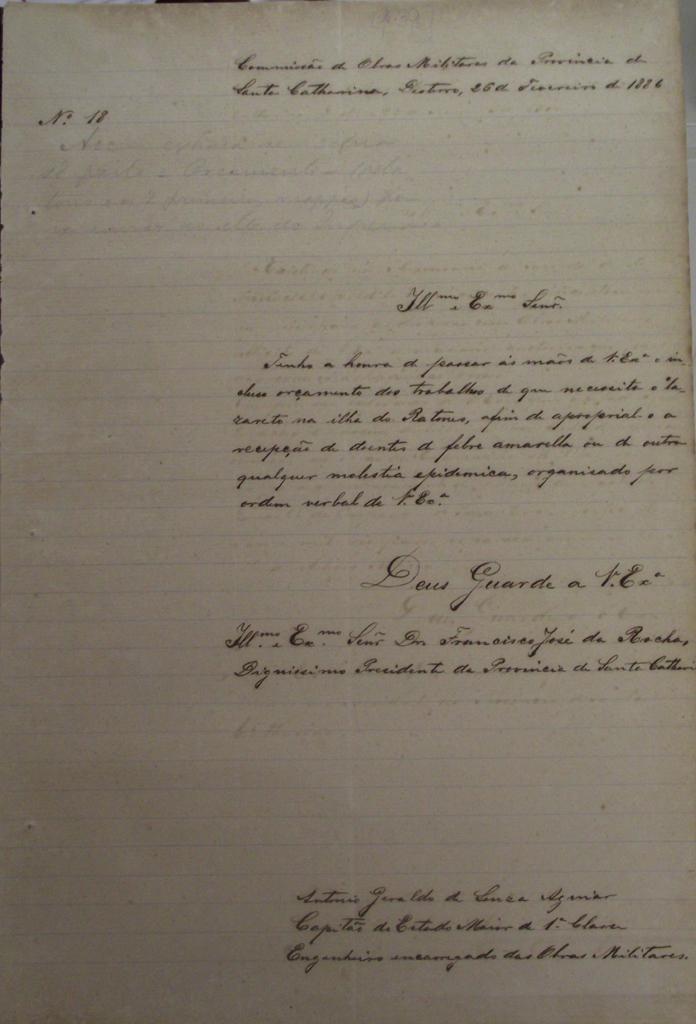 Commissão de Obras Militares da Provincia de
Santa Catharina, Desterro, 26 de Fevereiro de 1886
N.º 18
Ill.mo e Ex.mo Senr.
Tenho a honra de passar ás mãos de V. Ex.ª o in-
cluso orçamento dos trabalhos de que necessita o la-
zareto na ilha do Ratones, afim de aproprial-o a
recepção de doentes de febre amarella ou de outra
qualquer molestia epidemica, organisado por
ordem verbal de V. Ex.ª
Deus Guarde a V. Ex.ª
Ill.mo e Ex.mo Senr Dr. Francisco José da Rocha,
Dignissimo Presidente da Provincia de Santa Cathari
Antonio Geraldo de Souza Aguiar
Capitão de Estado Maior de 1ª Classe
Engenheiro encarregado das Obras Militares.